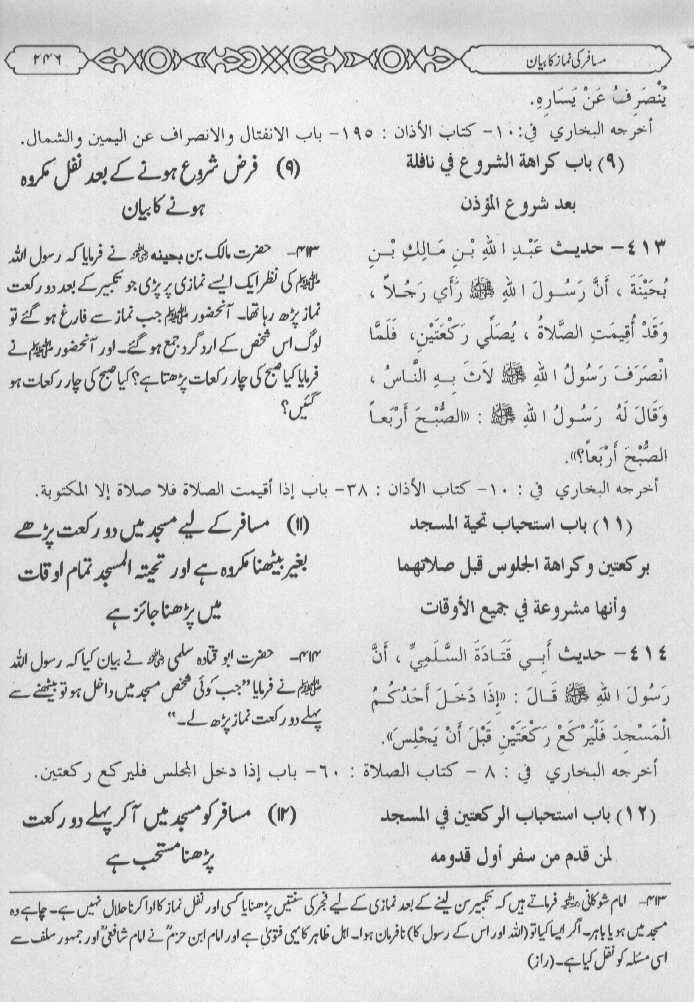 مسافر کی نماز کا بیان
۲۴۶
يَنْصَرِفُ عَنْ يَسَارِهِ.
أخرجه البخاري في: ١٠- كتاب الأذان : ١٩٥- باب الانفتال والانصراف عن اليمين والشمال.
(٩) باب كراهة الشروع في نافلة
بعد شروع المؤذن
(۹) فرض شروع ہونے کے بعد نفل مکروہ
ہونے کا بیان
٤١٣- حديث عَبْدِ اللهِ بْنِ مَالِكِ بْنِ
بُحَيْنَةَ ، أَنَّ رَسُولَ اللهِ ﷺ رَأَي رَجُلاً ،
وَقَدْ أُقِيمَتِ الصَّلاَةُ ، يُصَلِّي رَكْعَتَيْنِ، فَلَمَّا
انْصَرَفَ رَسُولُ اللهِ ﷺ لاَثَ بِهِ النَّاسُ ،
وَقَالَ لَهُ رَسُولُ اللهِ ﷺ : «الصُّبْحَ أَرْبَعاً
الصُّبْحَ أَرْبَعاً؟».
۴۱۳- حضرت مالک بن بحینہ ؓ نے فرمایا کہ رسول اللہ
ﷺ کی نظر ایک ایسے نمازی پر پڑی جو تکبیر کے بعد دو رکعت
نماز پڑھ رہا تھا۔ آنحضور ﷺ جب نماز سے فارغ ہو گئے تو
لوگ اس شخص کے ارد گرد جمع ہو گئے۔ اور آنحضور ﷺ نے
فرمایا کیا صبح کی چار رکعات پڑھتا ہے؟ کیا صبح کی چار رکعات ہو
گئیں؟
أخرجه البخاري في : ١٠- كتاب الأذان : ٣٨- باب إذا أقيمت الصلاة فلا صلاة إلا المكتوبة.
(١١) باب استحباب تحية المسجد
بركعتين وكراهة الجلوس قبل صلاتهما
وأنها مشروعة في جميع الأوقات
(۱۱) مسافر کے لیے مسجد میں دو رکعت پڑھے
بغیر بیٹھنا مکروہ ہے اور تحیتہ المسجد تمام اوقات
میں پڑھنا جائز ہے
٤١٤- حديث أَبِي قَتَادَةَ السَّلَمِيِّ ، أَنَّ
رَسُولَ اللهِ ﷺ قَالَ : «إِذَا دَخَلَ أَحَدُكُمُ
الْمَسْجِدَ فَلْيَرْكَعْ رَكْعَتَيْنِ قَبْلَ أَنْ يَجْلِسَ».
۴۱۴- حضرت ابو قتادہ سلمی ؓ نے بیان کیا کہ رسول اللہ
ﷺ نے فرمایا ”جب کوئی شخص مسجد میں داخل ہو تو بیٹھنے سے
پہلے دو رکعت نماز پڑھ لے۔“
أخرجه البخاري في : ٨ - كتاب الصلاة : ٦٠- باب إذا دخل المجلس فليركع ركعتين.
(١٢) باب استحباب الركعتين في المسجد
لمن قدم من سفر أول قدومه
(۱۲) مسافر کو مسجد میں آکر پہلے دو رکعت
پڑھنا مستحب ہے
۴۱۳- امام شوکانی ؒ فرماتے ہیں کہ تکبیر سن لینے کے بعد نمازی کے لیے فجر کی سنتیں پڑھنا یا کسی اور نفل نماز کا ادا کرنا حلال نہیں ہے۔ چاہے وہ
مسجد میں ہو یا باہر۔ اگر ایسا کیا تو (اللہ اور اس کے رسول کا) نافرمان ہوا۔ اہل ظاہر کا یہی فتویٰ ہے اور امام ابن حزمؒ نے امام شافعیؒ اور جمہور سلف سے
اسی مسئلہ کو نقل کیا ہے۔ (راز)